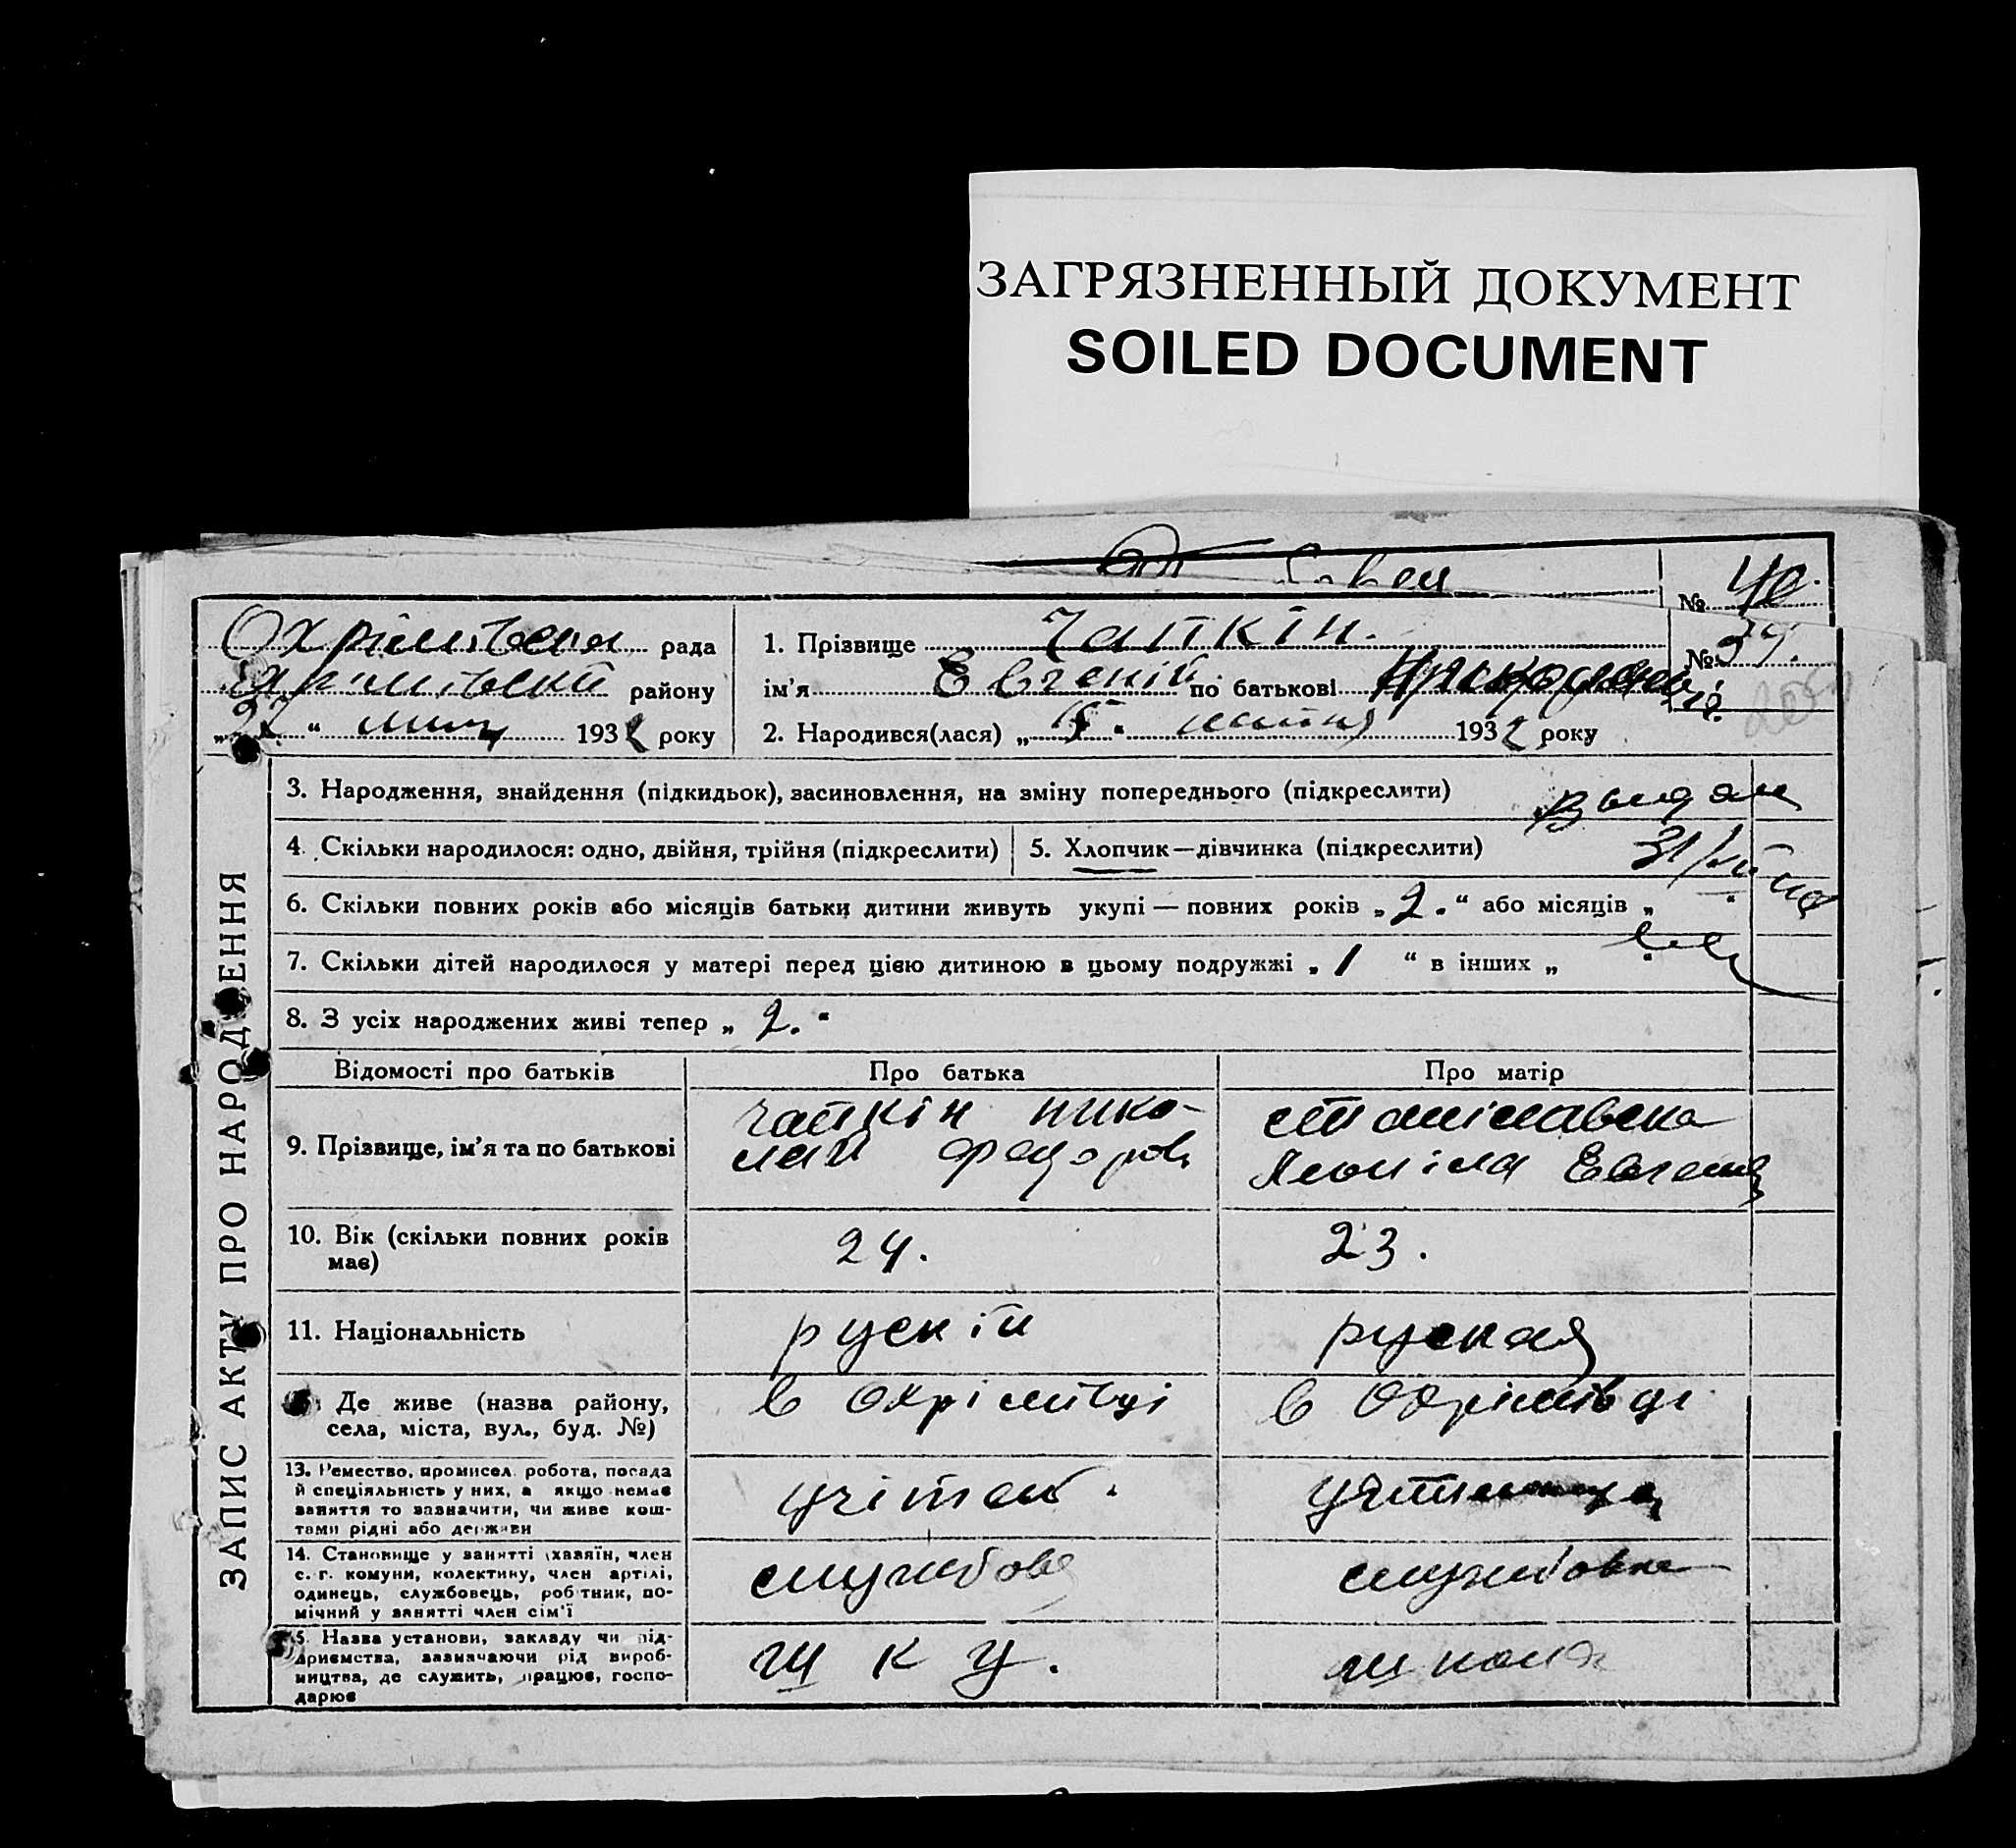 ЗАГРЯЗНЕННЫЙ ДОКУМЕНТ
SOILED DOCUMENT
№ 40.
рада
району
„ “ 193 року
1. Прізвище Чапкін.
№ 39.
ім’я Євгеній по батькові
2. Народився(лася) „ “ 193 року
ЗАПИС АКТУ ПРО НАРОДЖЕННЯ
3. Народження, знайдення (підкидьок), засиновлення, на зміну попереднього (підкреслити)
4. Скільки народилося: одно, двійня, трійня (підкреслити)
5. Хлопчик—дівчинка (підкреслити)
6. Скільки повних років або місяців батьки дитини живуть укупі — повних років „ 2. “ або місяців „ “
7. Скільки дітей народилося у матері перед цією дитиною в цьому подружжі „ 1 “ в інших „ “
8. З усіх народжених живі тепер „ 2. “
Відомості про батьків
Про батька
Про матір
9. Прізвище, ім’я та по батькові
Чапкін Нико-
лай Федоров
10. Вік (скільки повних років
має)
24.
23.
11. Національність
рускій
руская
Де живе (назва району,
села, міста, вул., буд. №)
в Охрімівці
в Охрімівці
13. Ремество, промисел, робота, посада
й спеціяльність у них, а якщо немає
заняття то зазначити, чи живе кош-
тами рідні або держави
учітель.
14. Становище у занятті (хазяїн, член
с.-г. комуни, колективу, член артілі,
одинець, службовець, робітник, по-
мічний у занятті член сім’ї
службов
службовка
15. Назва установи, закладу чи під-
приємства, зазначаючи рід вироб-
ництва, де служить, працює, госпо-
дарює
ш к у.
школа